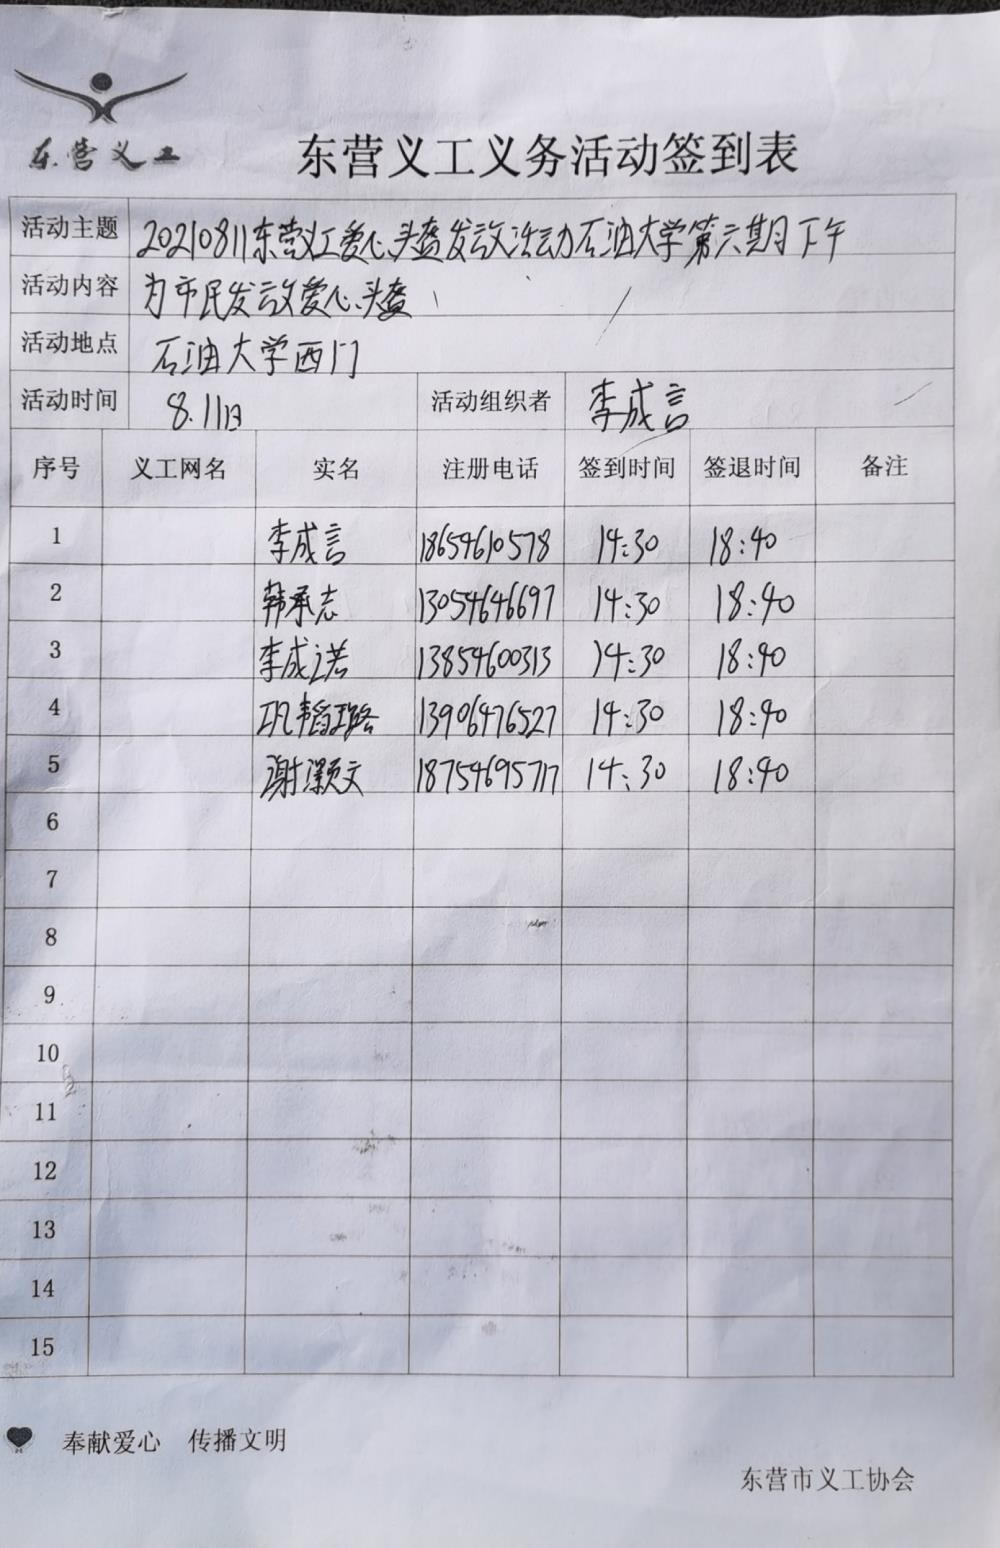 东营义工
东营义工义务活动签到表
活动主题 20210811东营义工爱心头盔发放活动石油大学第六期下午
活动内容 为市民发放爱心头盔
活动地点 石油大学西门
活动时间 8.11日 活动组织者 李成言
序号 义工网名 实名 注册电话 签到时间 签退时间 备注
1 李成言 18654610578 14:30 18:40
2 韩承志 13054646697 14:30 18:40
3 李成诺 13854600313 14:30 18:40
4 巩韬璐 13906476527 14:30 18:40
5 谢灏文 18754695717 14:30 18:40
6
7
8
9
10
11
12
13
14
15
奉献爱心 传播文明
东营市义工协会